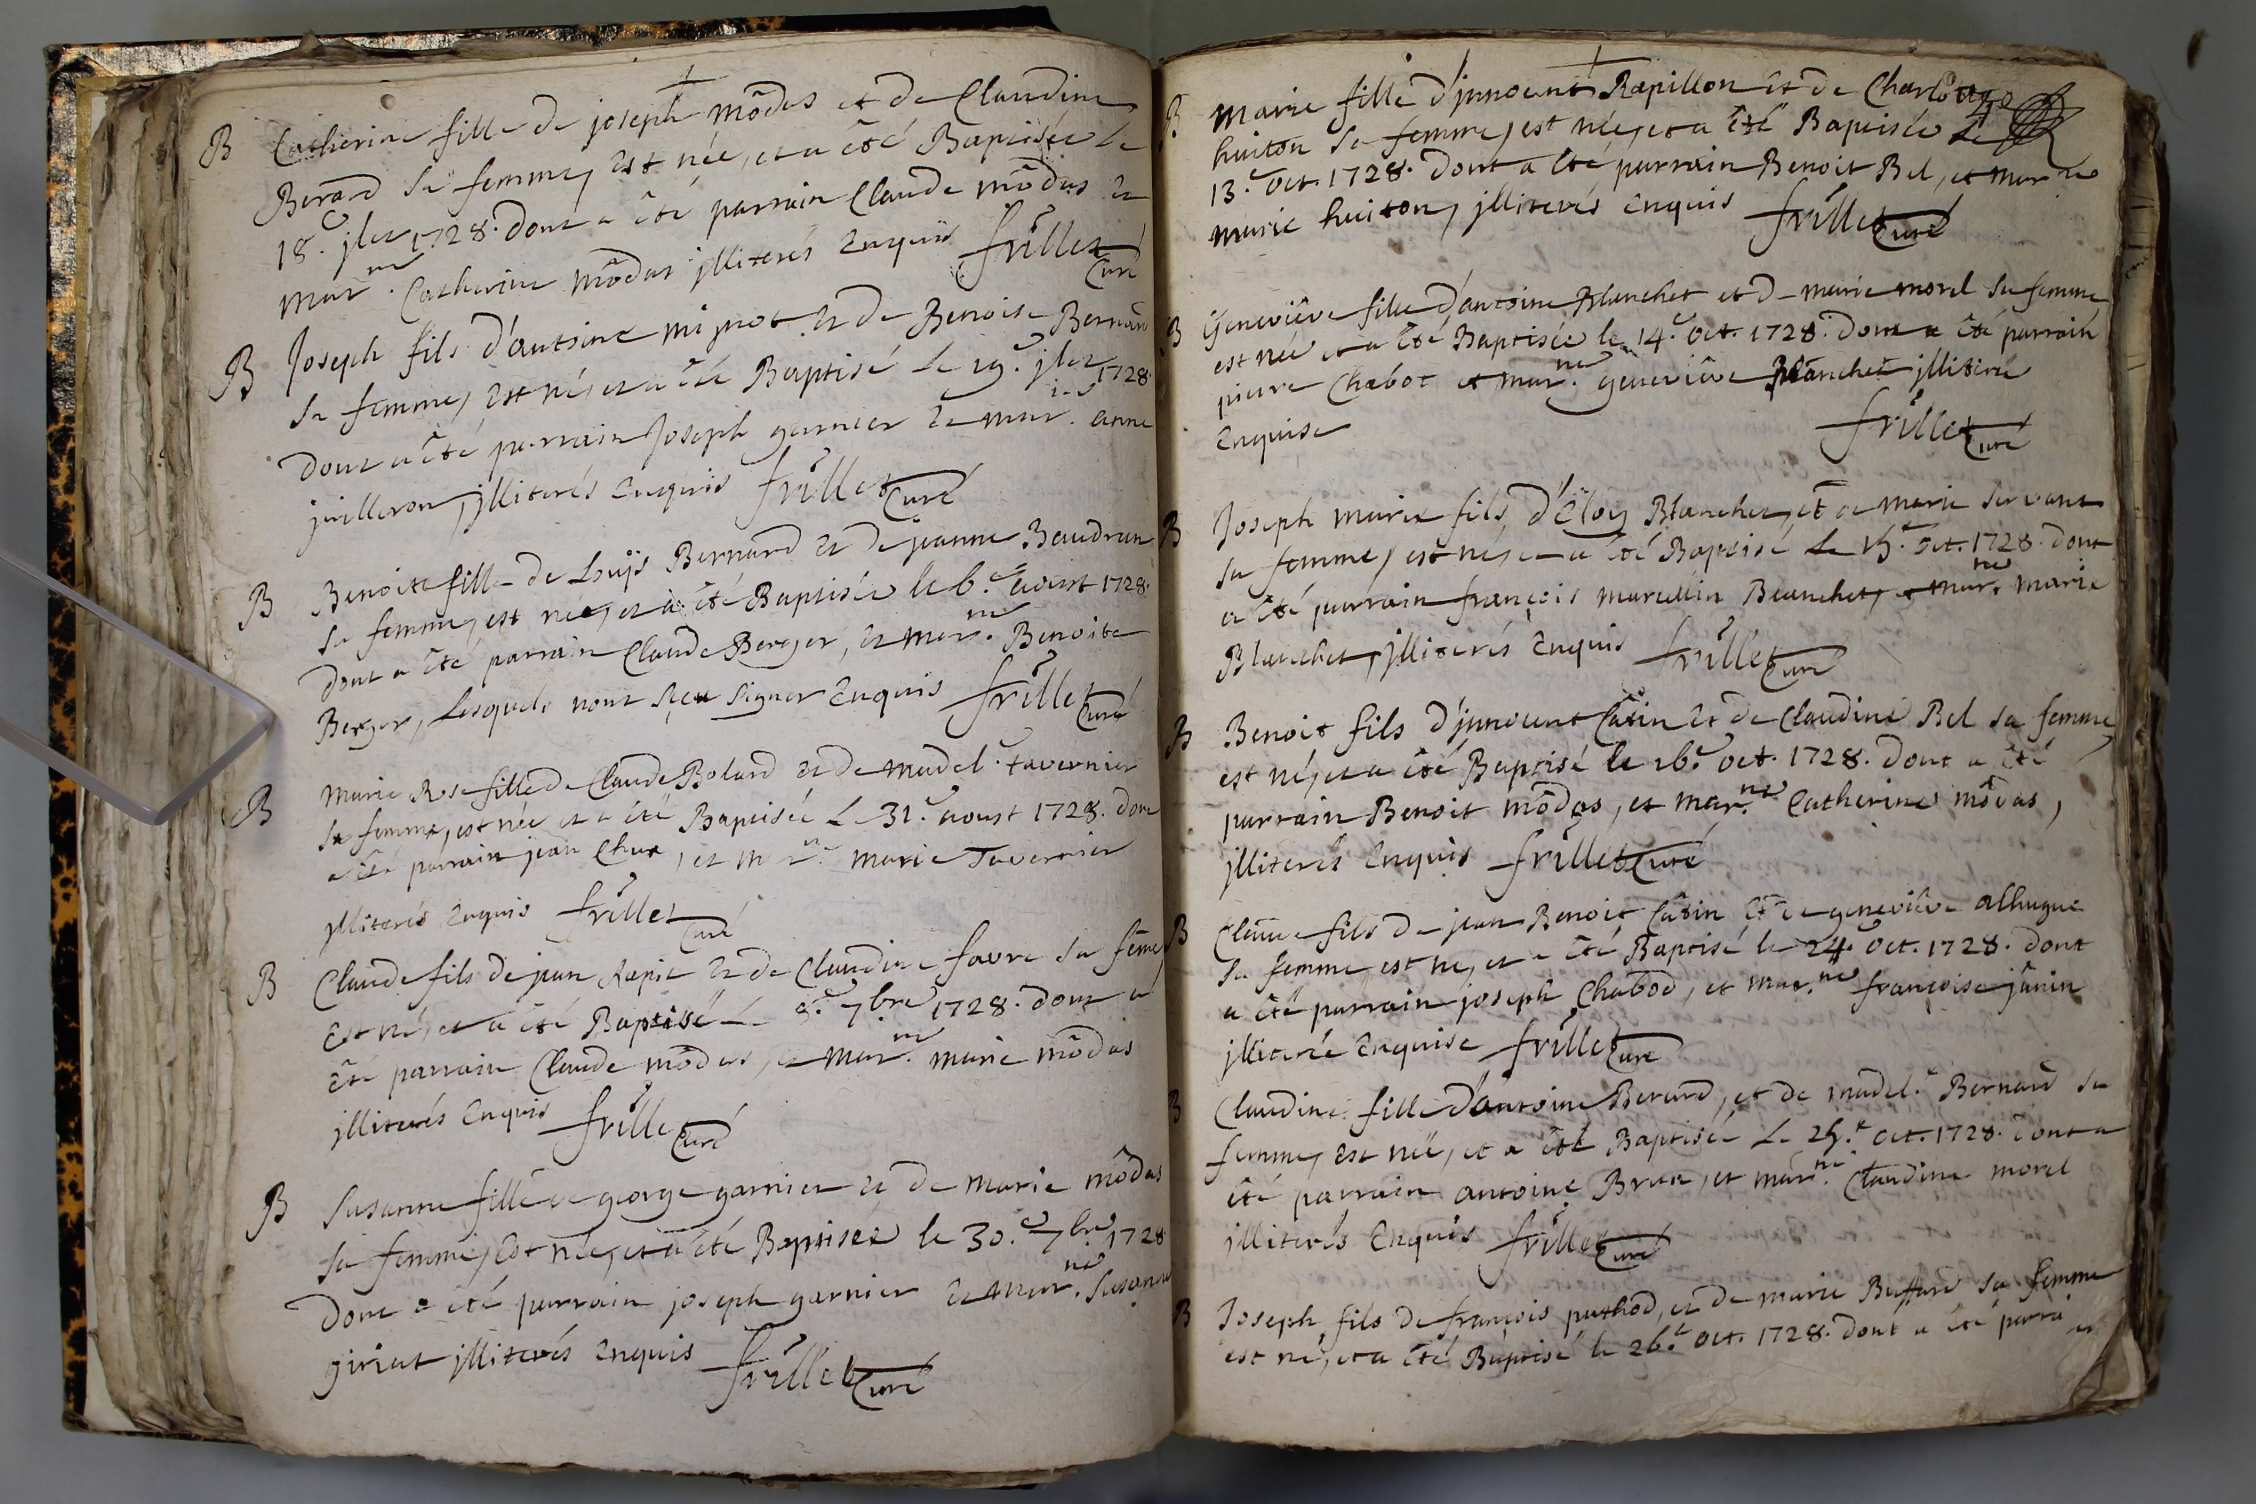 B Catherine fille de joseph môdas et de Claudine
Berard sa femme, est née, et a été Baptisée le
18.e jlet 1728. dont a été parrain Claude môdas et
mar.ne Catherine môdas jlliterés Enquis frillet Curé
B Joseph fils d'antoine mignot et de Benoite Bernard
sa femme, est né, et a été Baptisé le 19.e jlet 1728
dont a été parrain Joseph garnier et mar.ne anne
juilleron, jlliterés Enquis frillet Curé
B Benoite fille de Loüys Bernard et de jeanne Baudran
sa femme, est née, et a été Baptisée le 6.e aoust 1728.
dont a été parrain Claude Berger, et mar.ne Benoite
Berger, Lesquels nont sçeu signer Enquis frillet Curé
B marie Rose fille de Claude Bolard et de madel.e tavernier
sa femme, est née et a été Baptisée Le 31.e aoust 1728. dont
a été parrain jean , et m.ne marie Tavernier
jlliterés Enquis frillet Curé
B Claude fils de jean Rapit et de Claudine favre sa fême,
Est né, et a été Baptisé Le 8.e 7.bre 1728. dont a
été parrain Claude môdas, et mar.ne marie môdas
jlliterés Enquis frillet Curé
B Susanne fille de george garnier et de marie môdas
sa femme, est née, et a été Baptisée le 30.e 7.bre 1728
dont a été parrain joseph garnier et mar.ne Susanne
giriat jlliterés Enquis frillet Curé
B marie fille d'jnnocent Rapillon et de Charlotte
huiton sa femme, est née, et a été Baptisée Le
13.e oct. 1728. dont a été parrain Benoit Bel, et mar.ne
marie huiton, jlliterés Enquis frillet Curé
B Geneviève fille d'antoine Blanchet et de marie morel sa femme
est née et a été Baptisée le 14.e oct. 1728. dont a été parrain
pierre Chabot et mar.ne geneviève Blanchet jlliterée
Enquise frillet Curé
B Joseph marie fils d'Eloy Blanchet, et de marie servant
sa femme, est né, et a été Baptisé Le 15.e oct. 1728. dont
a été parrain françois marcellin Blanchet, et mar.ne marie
Blanchet, jlliterés Enquis frillet Curé
B Benoit fils d'jnnocent Câtin et de Claudine Bel sa femme,
est né, et a été Baptisé le 16.e oct. 1728. dont a été
parrain Benoit môdas, et mar.ne Catherine môdas,
jlliterés Enquis frillet Curé
B Claude fils de jean Benoit Câtin et de geneviève alhugue
sa femme, est né, et a été Baptisé le 24.e oct. 1728. dont
a été parrain joseph Chabod, et mar.ne françoise jânin
jlliterée Enquise frillet Curé
B Claudine fille d'antoine Berard, et de madel.e Bernard sa
femme, est née, et a été Baptisée Le 25.e oct. 1728. dont a
été parrain antoine , et mar.ne Claudine morel
jlliterés Enquis frillet Curé
B Joseph fils de françois puthod, et de marie Buffard sa femme
est né, et a été Baptisé le 26.e oct. 1728. dont a été parrain